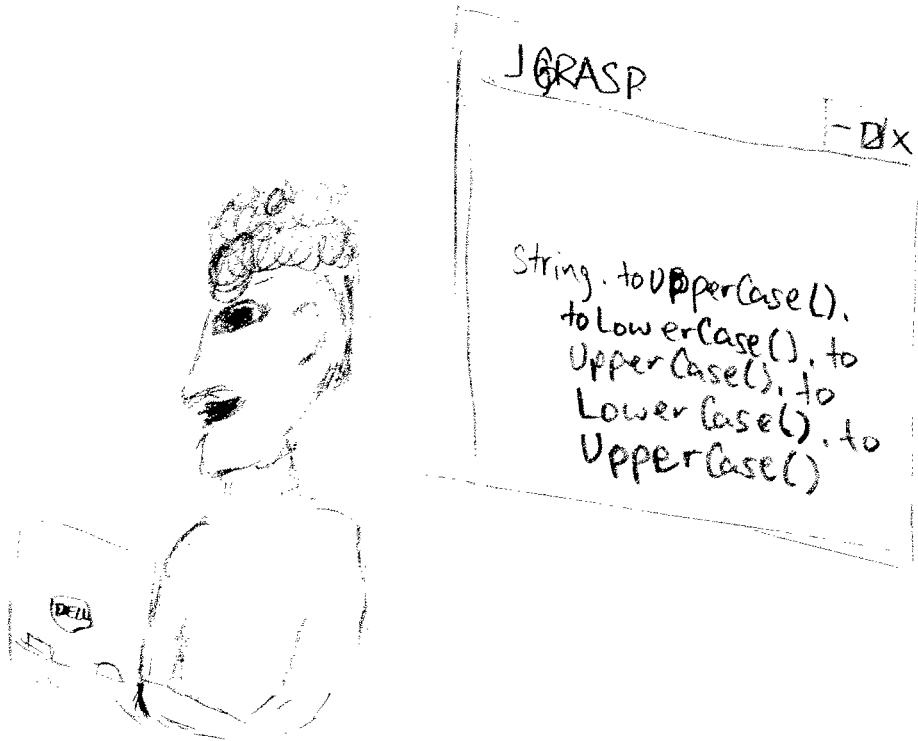 JGRASP
- □ X
String.toUpperCase().
toLowerCase().to
UpperCase().to
LowerCase().to
UpperCase()
DELL